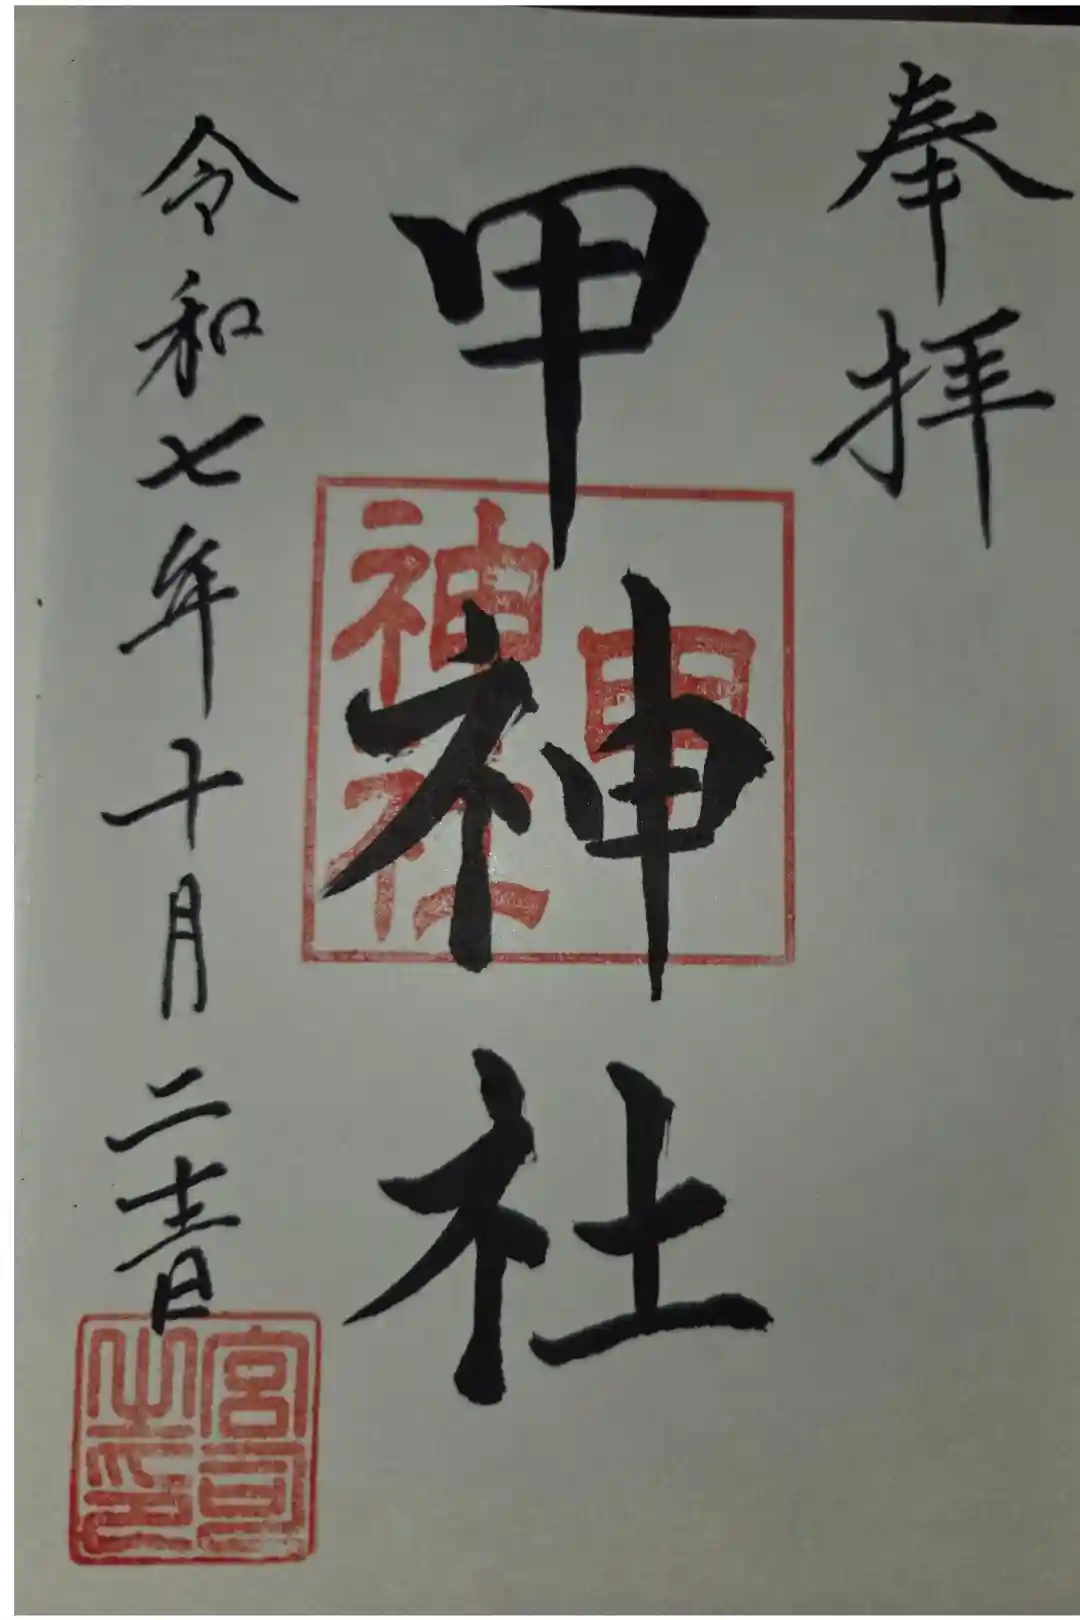 奉拝
甲神社
甲
神社
令和七年十月二十日
宮司
之印